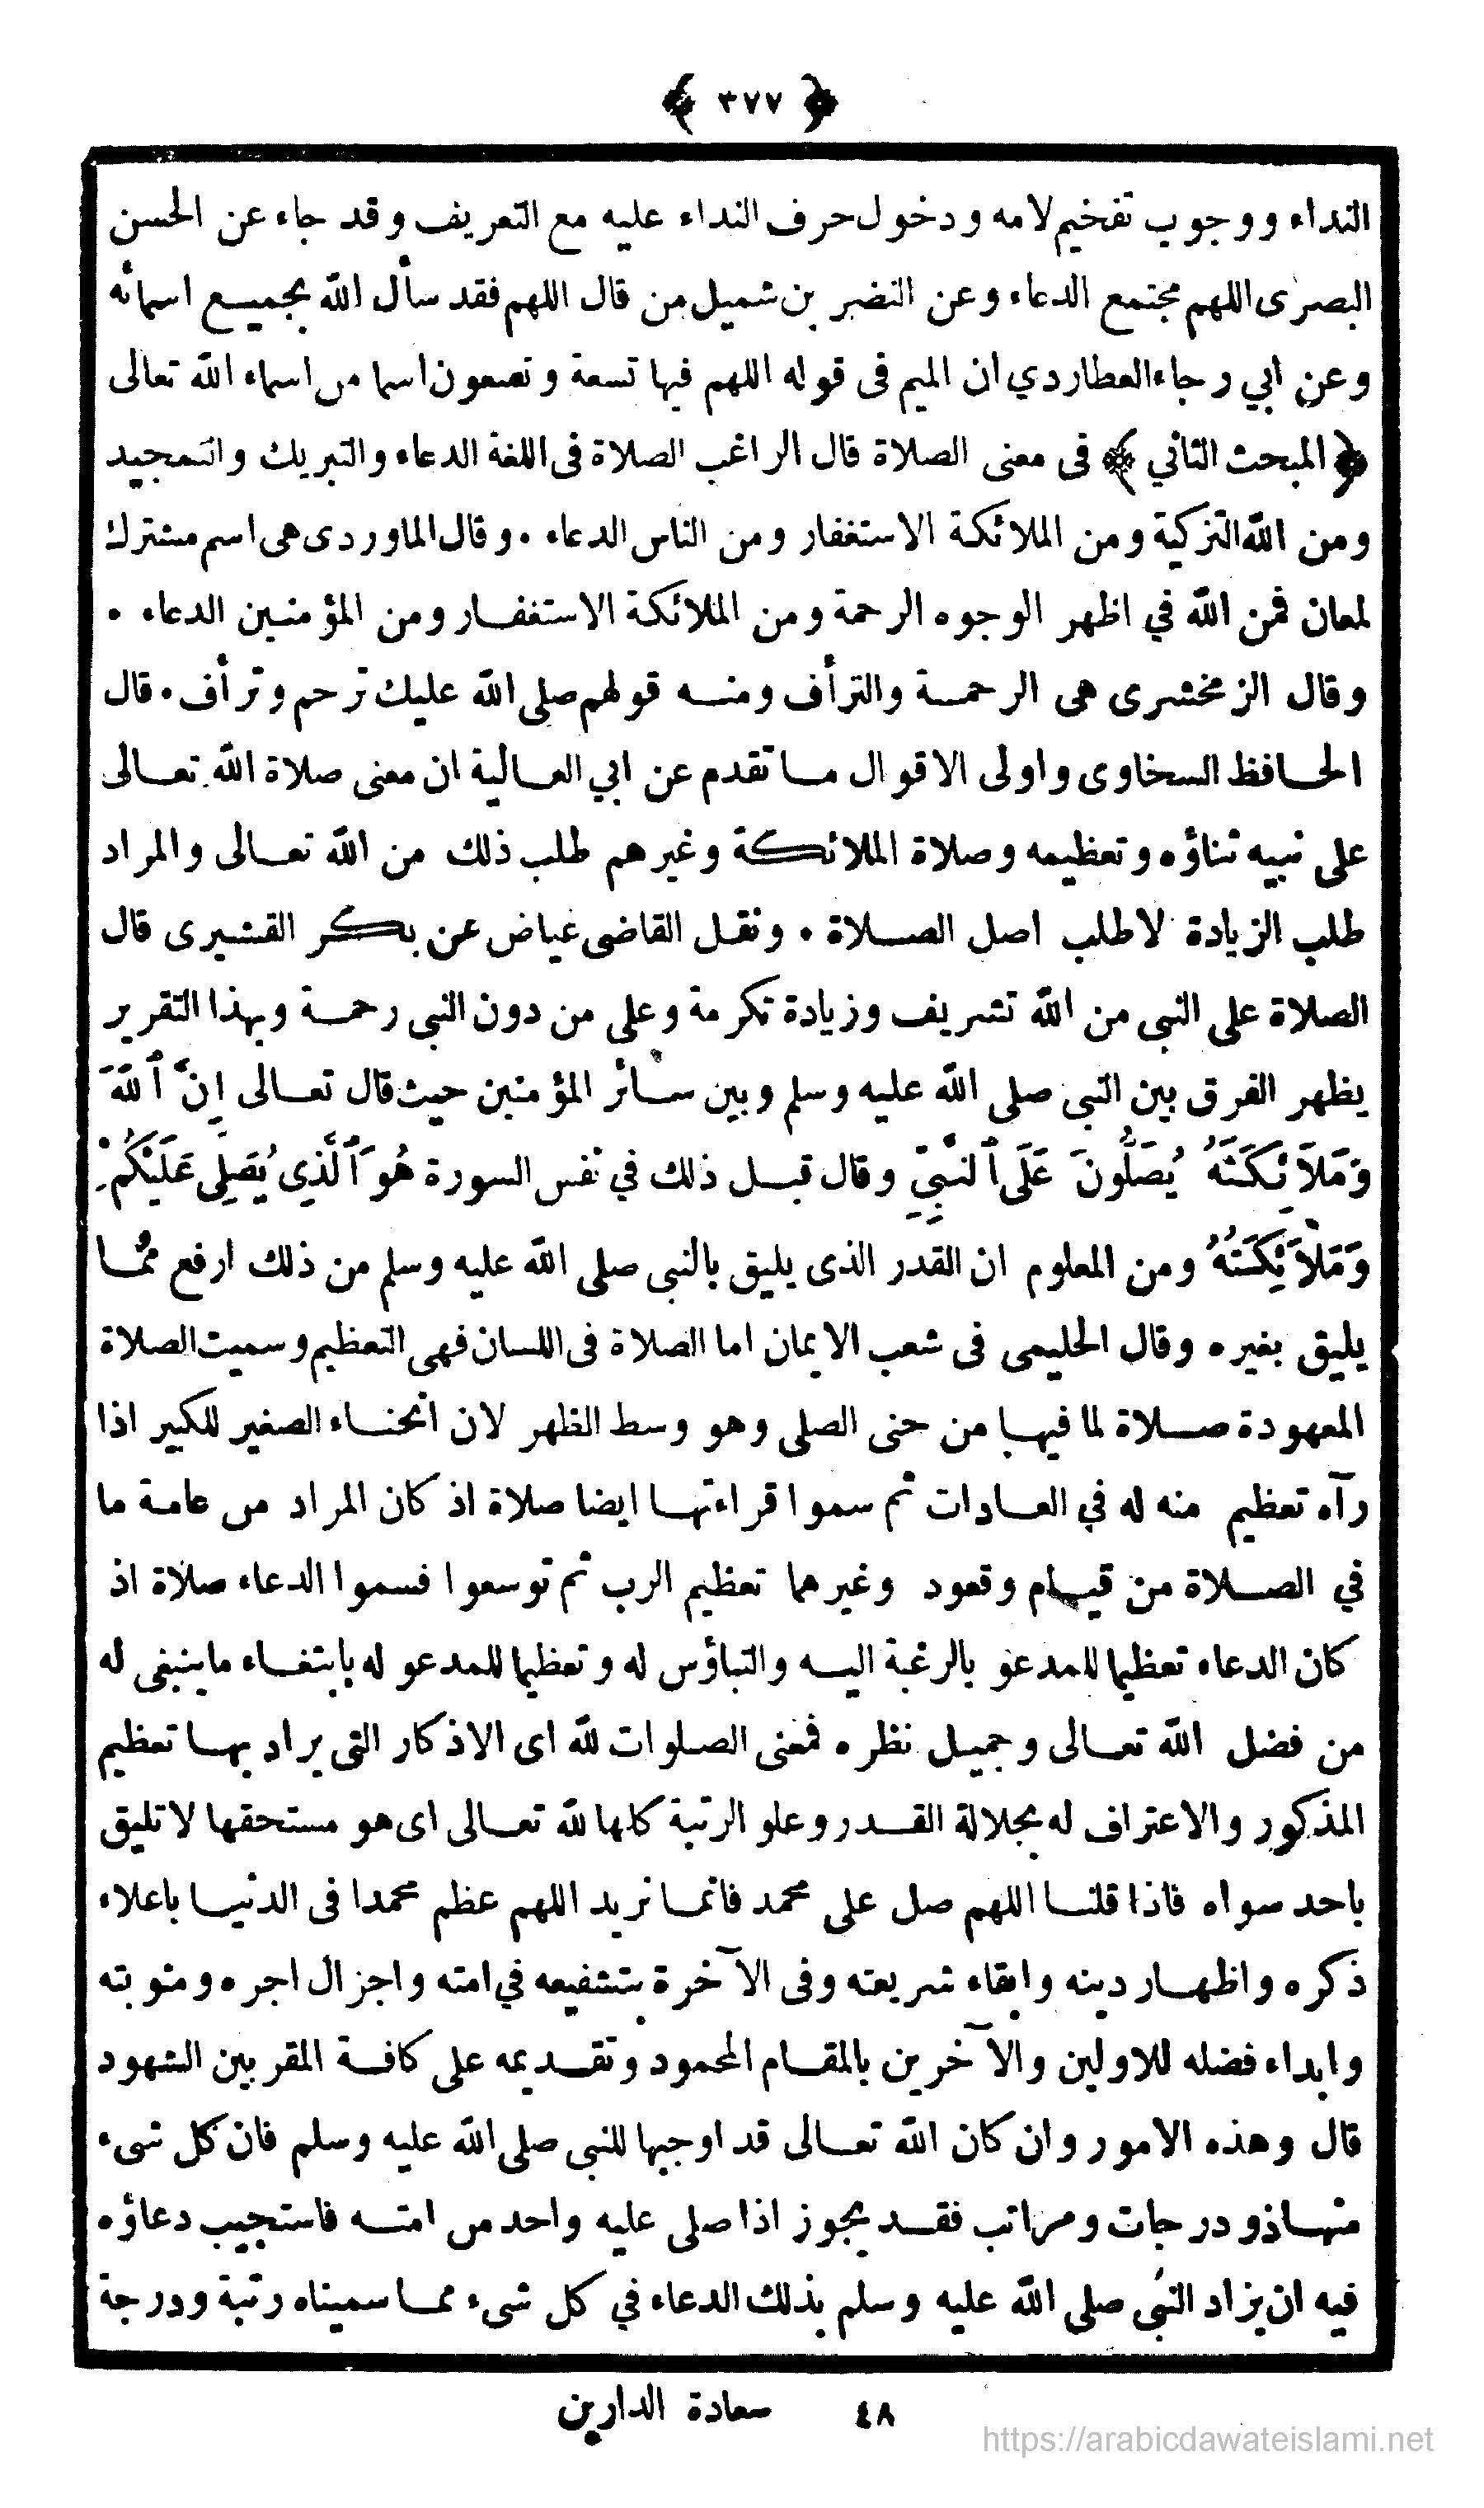 ﴿ ٣٧٧ ﴾
النداء ووجوب تفخيم لامه ودخول حرف النداء عليه مع التعريف وقد جاء عن الحسن
البصرى اللهم مجتمع الدعاء وعن النضر بن شميل من قال اللهم فقد سأل الله بجميع اسمائه
وعن ابي رجاء العطاردي ان الميم فى قوله اللهم فيها تسعة وتسعون اسما من اسماء الله تعالى
﴿ المبحث الثاني ﴾ فى معنى الصلاة قال الراغب الصلاة فى اللغة الدعاء والتبريك والتمجيد
ومن الله التزكية ومن الملائكة الاستغفار ومن الناس الدعاء ٠ وقال الماوردى هى اسم مشترك
لمعان فمن الله في اظهر الوجوه الرحمة ومن الملائكة الاستغفار ومن المؤمنين الدعاء ٠
وقال الزمخشرى هى الرحمة والترأف ومنه قولهم صلى الله عليك ترحم وترأف ٠ قال
الحافظ السخاوى واولى الاقوال ما تقدم عن ابي العالية ان معنى صلاة الله تعالى
على نبيه ثناؤه وتعظيمه وصلاة الملائكة وغيرهم طلب ذلك من الله تعالى والمراد
طلب الزيادة لا طلب اصل الصلاة ٠ ونقل القاضى عياض عن بكر القشيرى قال
الصلاة على النبى من الله تشريف وزيادة تكرمة وعلى من دون النبى رحمة وبهذا التقرير
يظهر الفرق بين النبى صلى الله عليه وسلم وبين سائر المؤمنين حيث قال تعالى إِنَّ ٱللّٰهَ
وَمَلاَئِكَتَهُ يُصَلُّونَ عَلَى ٱلنَّبِيِّ وقال قبل ذلك في نفس السورة هُوَ ٱلَّذِي يُصَلِّى عَلَيْكُمْ
وَمَلاَئِكَتُهُ ومن المعلوم ان القدر الذى يليق بالنبى صلى الله عليه وسلم من ذلك ارفع مما
يليق بغيره وقال الحليمى فى شعب الايمان اما الصلاة فى اللسان فهى التعظيم وسميت الصلاة
المعهودة صلاة لما فيها من حنى الصلى وهو وسط الظهر لان انحناء الصغير للكبير اذا
رآه تعظيم منه له في العادات ثم سموا قراءتها ايضا صلاة اذ كان المراد من عامة ما
في الصلاة من قيام وقعود وغيرهما تعظيم الرب ثم توسعوا فسموا الدعاء صلاة اذ
كان الدعاء تعظيما للمدعو بالرغبة اليه والتباؤس له وتعظيما للمدعو له بابتغاء ما ينبغى له
من فضل الله تعالى وجميل نظره فمعنى الصلوات لله اى الاذكار التى يراد بها تعظيم
المذكور والاعتراف له بجلالة القدر وعلو الرتبة كلها لله تعالى اى هو مستحقها لا تليق
باحد سواه فاذا قلنا اللهم صل على محمد فانما نريد اللهم عظم محمدا فى الدنيا باعلاء
ذكره واظهار دينه وابقاء شريعته وفى الآخرة بتشفيعه في امته واجزال اجره ومثوبته
وابداء فضله للاولين والآخرين بالمقام المحمود وتقديمه على كافة المقربين الشهود
قال وهذه الامور وان كان الله تعالى قد اوجبها للنبى صلى الله عليه وسلم فان كل شىء
منها ذو درجات ومراتب فقد يجوز اذا صلى عليه واحد من امته فاستجيب دعاؤه
فيه ان يزاد النبى صلى الله عليه وسلم بذلك الدعاء في كل شىء مما سميناه رتبة ودرجة
٤٨ سعادة الدارين
https://arabicdawateislami.net